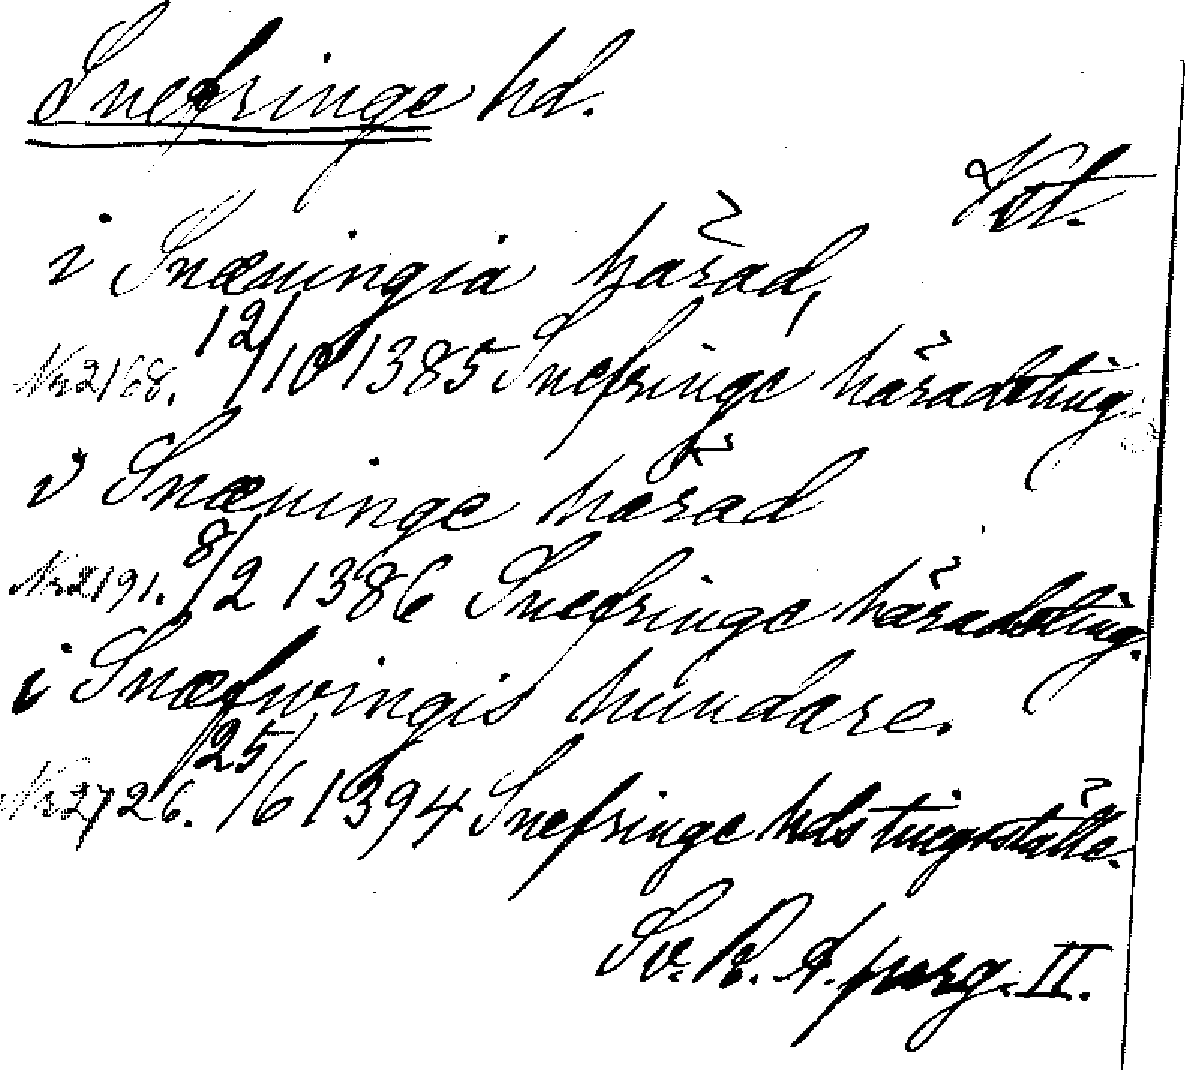 Snefringe hd.
Vst.
i Snæuingia härad,
Nr 2168. 12/10 1385 Snefringe häradsting
i Snæuinge härad
Nr 2191. 8/2 1386 Snefringe häradsting.
i Snæfwingis hundare.
Nr 2726. 25/6 1394 Snefringe hds tingsställe.
Sv. R. A. perg. II.